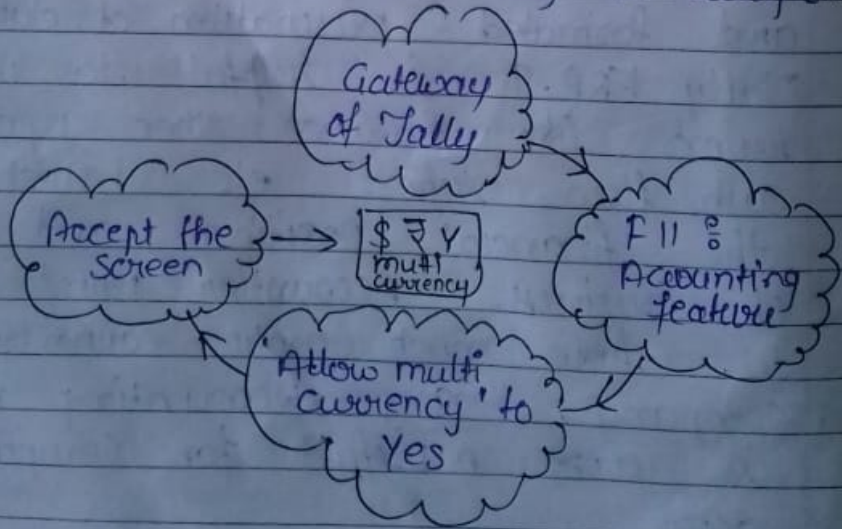 Gateway
of Tally
F11 :
Accounting
feature
'Allow multi
currency' to
Yes
Accept the
screen
$ ₹ Y
multi
currency